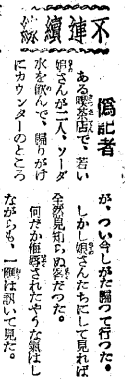 不連續線
僞記者
ある喫茶店で、若い
娘さんが二人、ソーダ
水を飮んで、歸りがけ
にカウンターのところ
が、つい今しがた歸つて行つた。
しかし娘さんたちにして見れば
全然見知らぬ客だつた。
何だか侮辱されたやうな氣はし
ながらも、一應は訊いて見た。